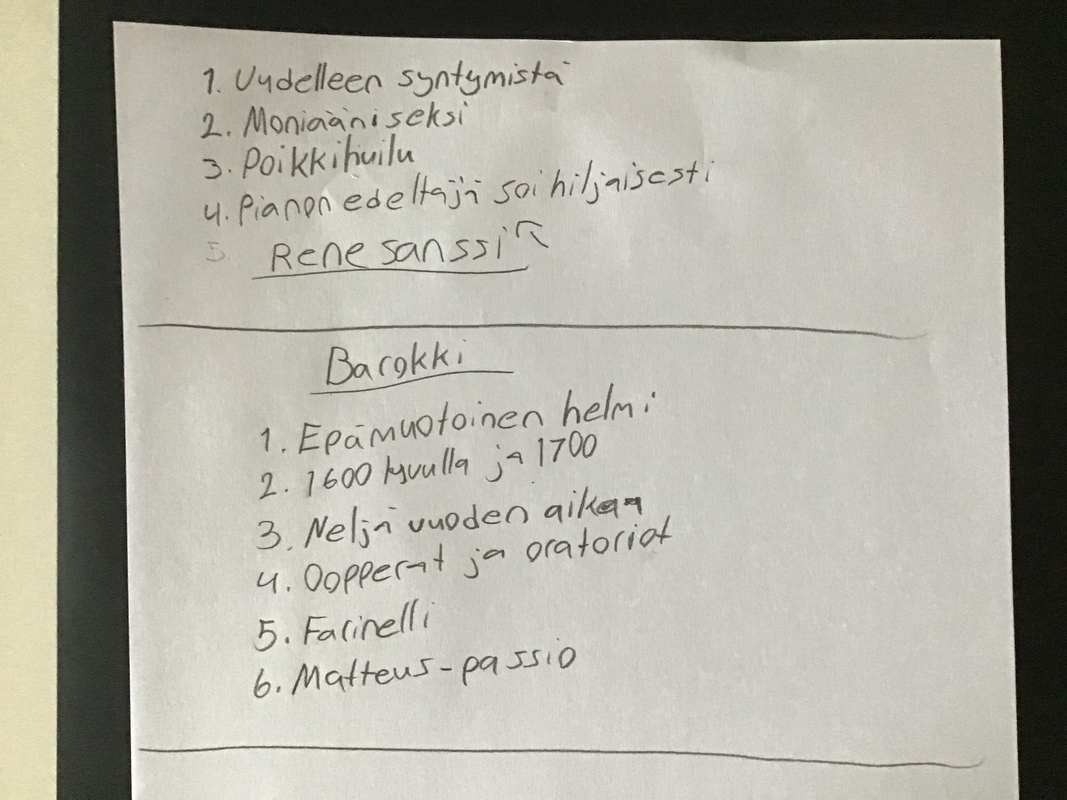 1. Uudelleen syntymistä
2. Moniääniseksi
3. Poikkihuilu
4. Pianon edeltäjä soi hiljaisesti
5.
Renesanssi
Barokki
1. Epämuotoinen helmi
2. 1600 luvulla ja 1700
3. Neljä vuoden aikaa
4. Oopperat ja oratoriot
5. Farinelli
6. Matteus-passio